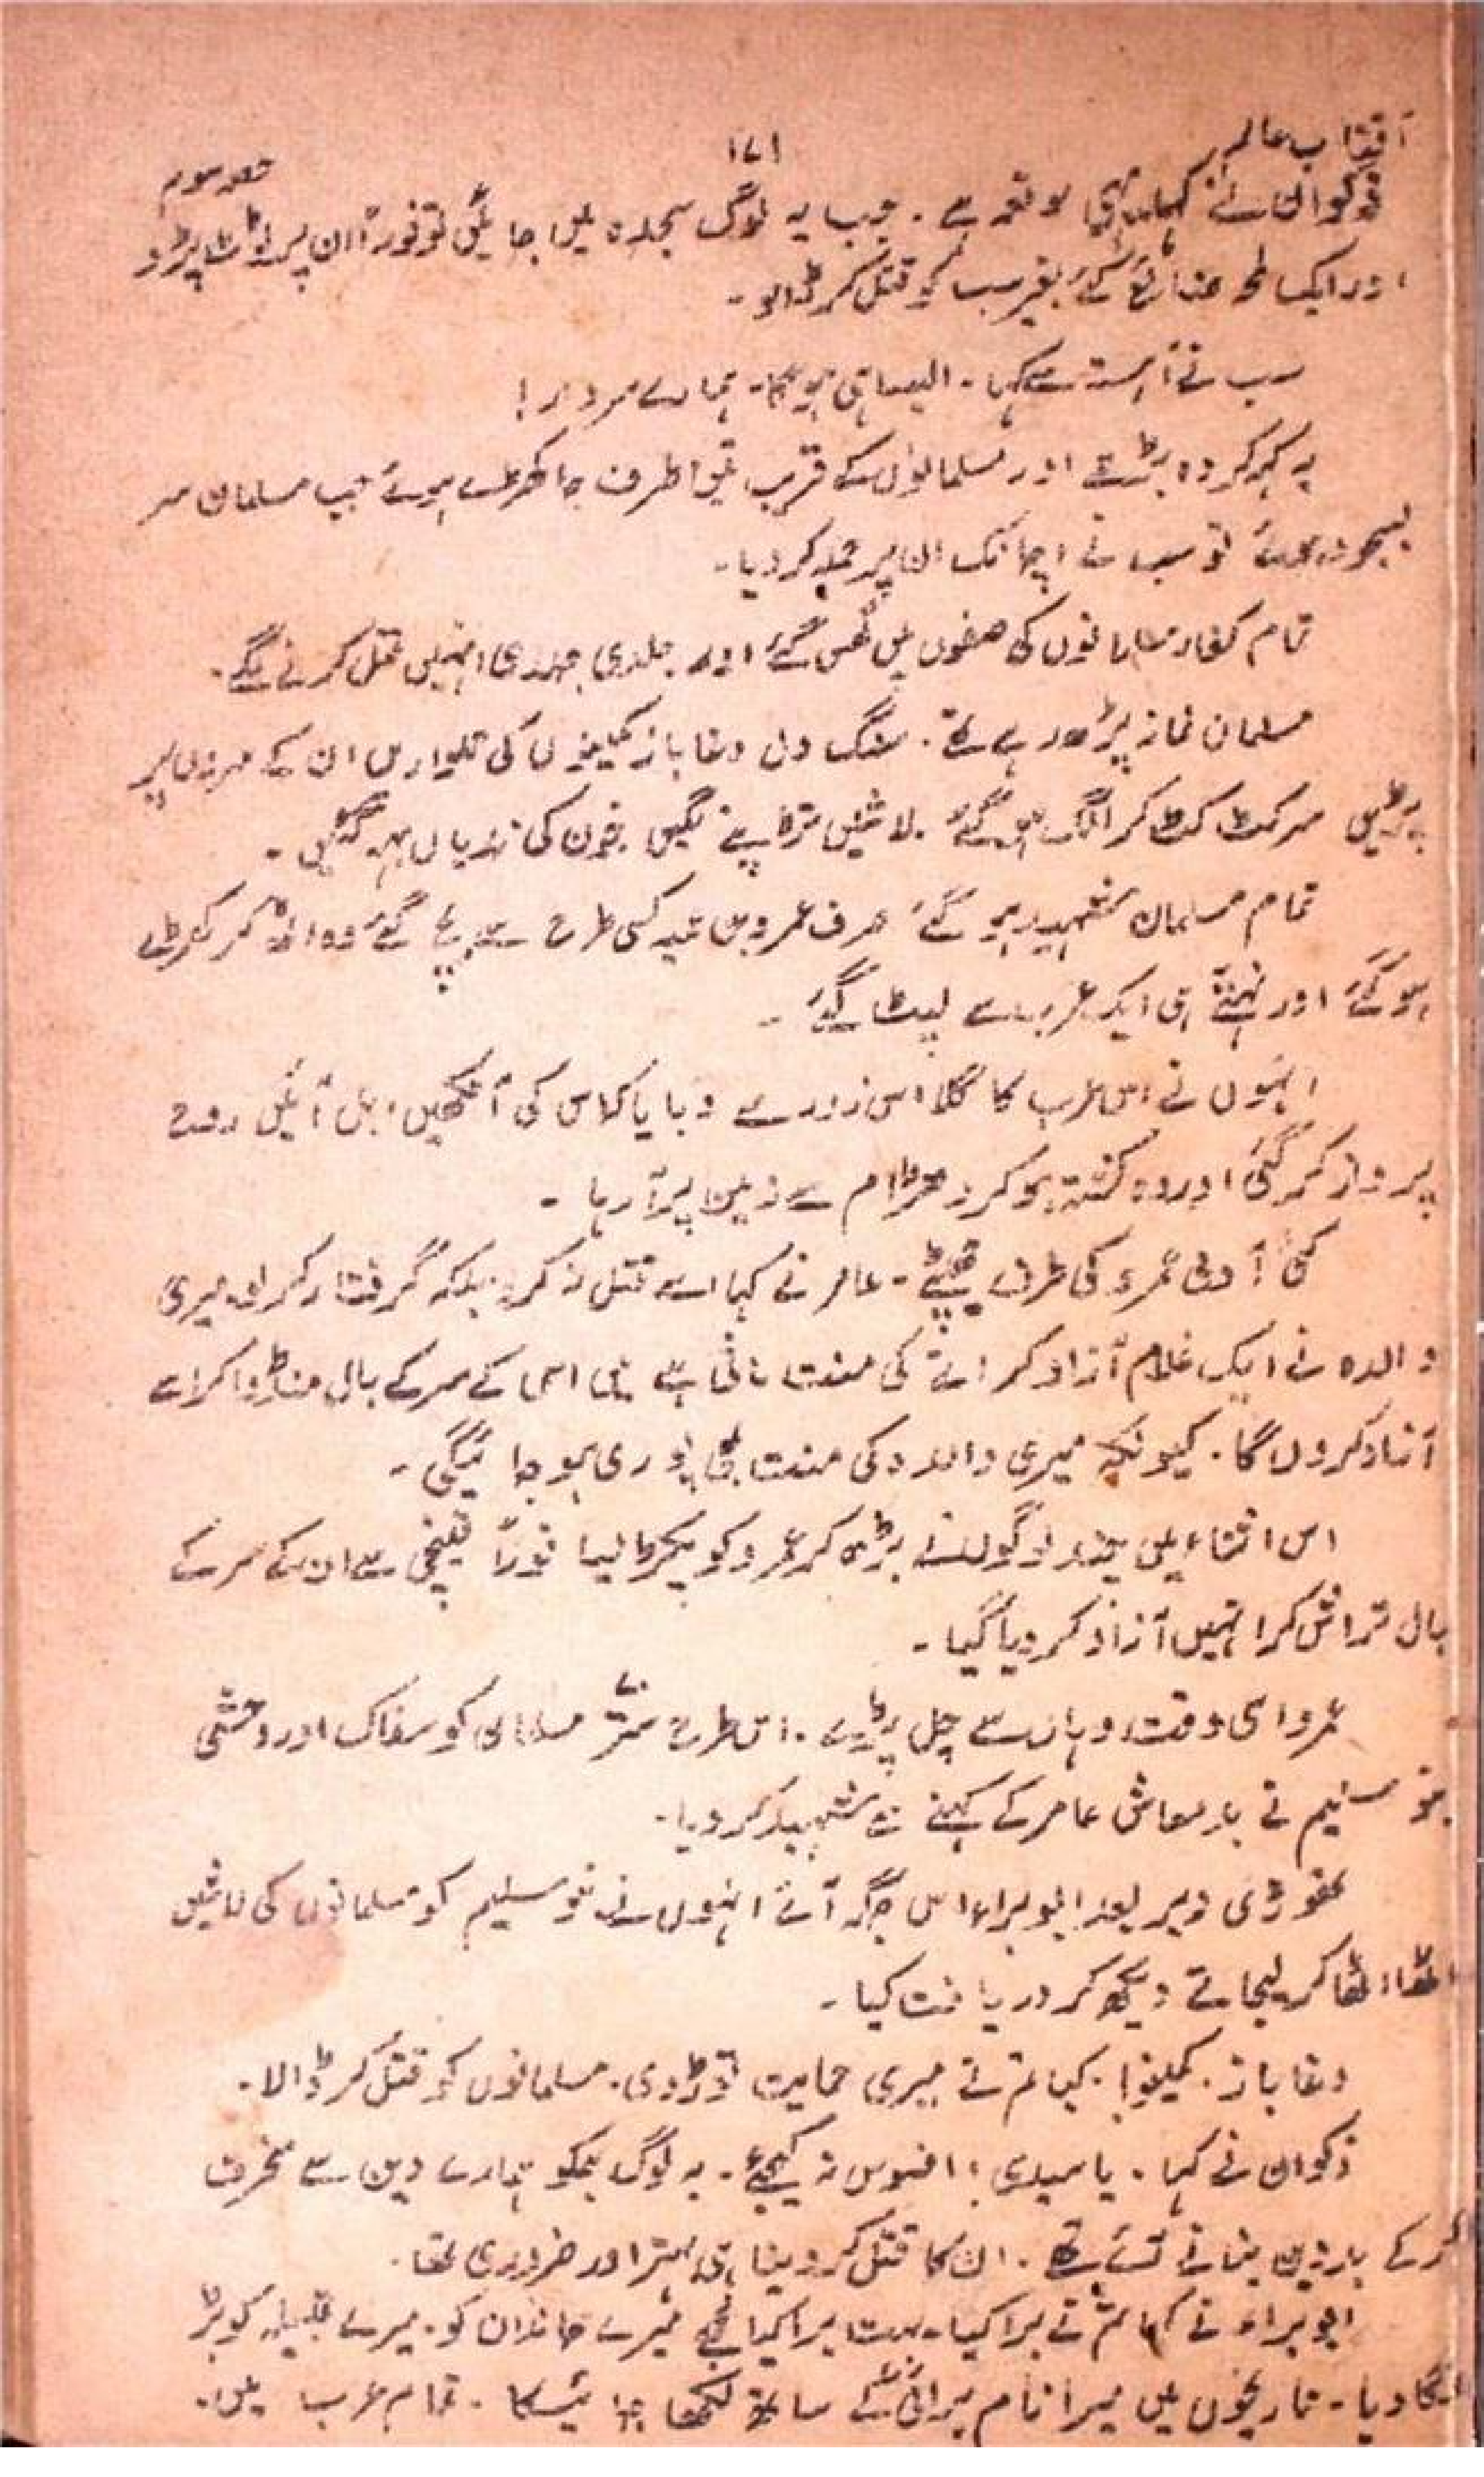 آفتاب عالم
۱۷۱
حصہ سوم
ذکوان نے کہا یہی موقعہ ہے۔ جب یہ لوگ سجدہ میں جائیں تو فوراً ان پر ٹوٹ پڑو
اور ایک لمحہ ضائع کئے بغیر سب کو قتل کر ڈالو۔
سب نے آہستہ سے کہا۔ ایسا ہی ہوگا۔ ہمارے سردار!
یہ کہہ کر وہ بڑھے اور مسلمانوں کے قریب تین طرف جا کھڑے ہوئے جب مسلمان سر
بسجود ہوئے تو سب نے اچانک ان پر حملہ کر دیا۔
تمام کفار مسلمانوں کی صفوں میں گھس گئے اور جلدی جلدی انہیں قتل کرنے لگے۔
مسلمان نماز پڑھ رہے تھے۔ سنگ دل دغا باز کمینوں کی تلواریں ان کے سروں پر
پڑیں سر کٹ کٹ کر الگ ہو گئے۔ لاشیں تڑپنے لگیں خون کی ندیاں بہہ گئیں۔
تمام مسلمان شہید ہو گئے صرف عمرو بن امیہ کسی طرح سے بچ گئے وہ اٹھ کر کھڑے
ہو گئے اور نہتے ہی ایک عرب سے لپٹ گئے۔
انہوں نے اس عرب کا گلا اس زور سے دبایا کہ اس کی آنکھیں ابل آئیں روح
پرواز کر گئی اور وہ کشتہ ہو کر دھڑام سے زمین پر آ رہا۔
کئی آدمی عمرو کی طرف جھپٹے۔ عامر نے کہا اسے قتل نہ کرو بلکہ گرفتار کر لو میری
والدہ نے ایک غلام آزاد کرانے کی منت مانی ہے میں اس کے سر کے بال منڈوا کر اسے
آزاد کروں گا۔ کیونکہ میری والدہ کی منت بھی پوری ہو جائیگی۔
اس اثناء میں چند لوگوں نے بڑھ کر عمرو کو پکڑ لیا فوراً قینچی سے ان کے سر کے
بال تراش کر انہیں آزاد کر دیا گیا۔
عمرو اسی وقت وہاں سے چل پڑے۔ اس طرح ستر مسلمانوں کو سفاک اور وحشی
بنو سلیم نے بدمعاش عامر کے کہنے سے شہید کر دیا۔
تھوڑی دیر بعد ابو براء اس جگہ آئے انہوں نے بنو سلیم کو مسلمانوں کی لاشیں
اٹھا اٹھا کر لیجاتے دیکھ کر دریافت کیا۔
دغا باز۔ کمینو! کیا تم نے میری حمایت توڑ دی۔ مسلمانوں کو قتل کر ڈالا۔
ذکوان نے کہا۔ یا سیدی! افسوس نہ کیجئے۔ یہ لوگ ہمکو ہمارے دین سے منحرف
کر کے بے دین بنانے آئے تھے۔ ان کا قتل کر دینا ہی بہتر اور ضروری تھا۔
ابو براء نے کہا تم نے برا کیا۔ بہت برا کیا مجھے میرے خاندان کو۔ میرے قبیلہ کو بٹہ
لگا دیا۔ تاریخوں میں میرا نام برائی کے ساتھ لکھا جائیگا۔ تمام عرب میں۔